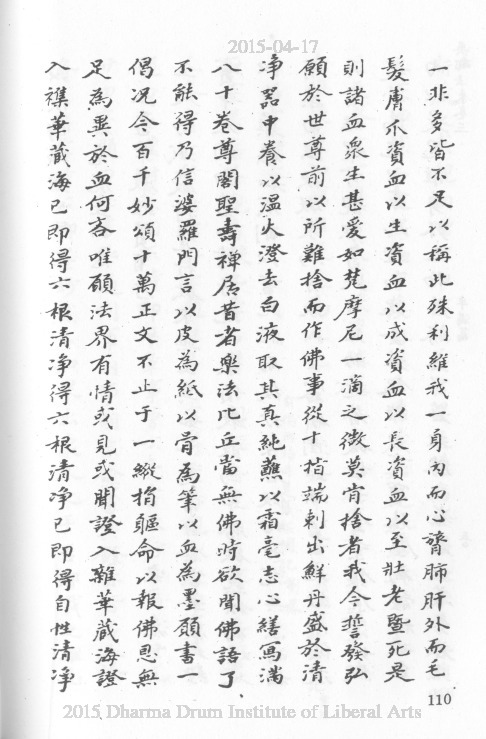 2015-04-17
一非多皆不足以稱此殊利維我一身內而心膂肺肝外而毛
髮膚爪資血以生資血以成資血以長資血以至壯老暨死是
則諸血眾生甚愛如梵摩尼一滴之微莫肯捨者我今誓發弘
願於世尊前以所難捨而作佛事從十指端刺出鮮丹盛於清
淨器中養以溫火澄去白液取其真純蘸以霜毫志心繕寫滿
八十卷尊閣聖壽禪居昔者樂法比丘當無佛時欲聞佛語了
不能得乃信婆羅門言以皮為紙以骨為筆以血為墨願書一
偈況今百千妙頌十萬正文不止于一縱捐軀命以報佛恩無
足為異於血何吝唯願法界有情或見或聞證入雜華藏海證
入襍華藏海已即得六根清淨得六根清淨已即得自性清淨
110
2015 Dharma Drum Institute of Liberal Arts